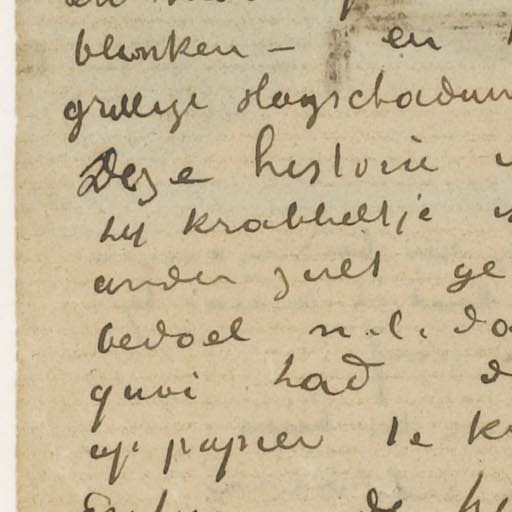 blonken — en
grillige slagschaduw
Deze historie
bij krabbeltje
ander zult ge
bedoel n.l. da
quoi had d
op papier te k
de he